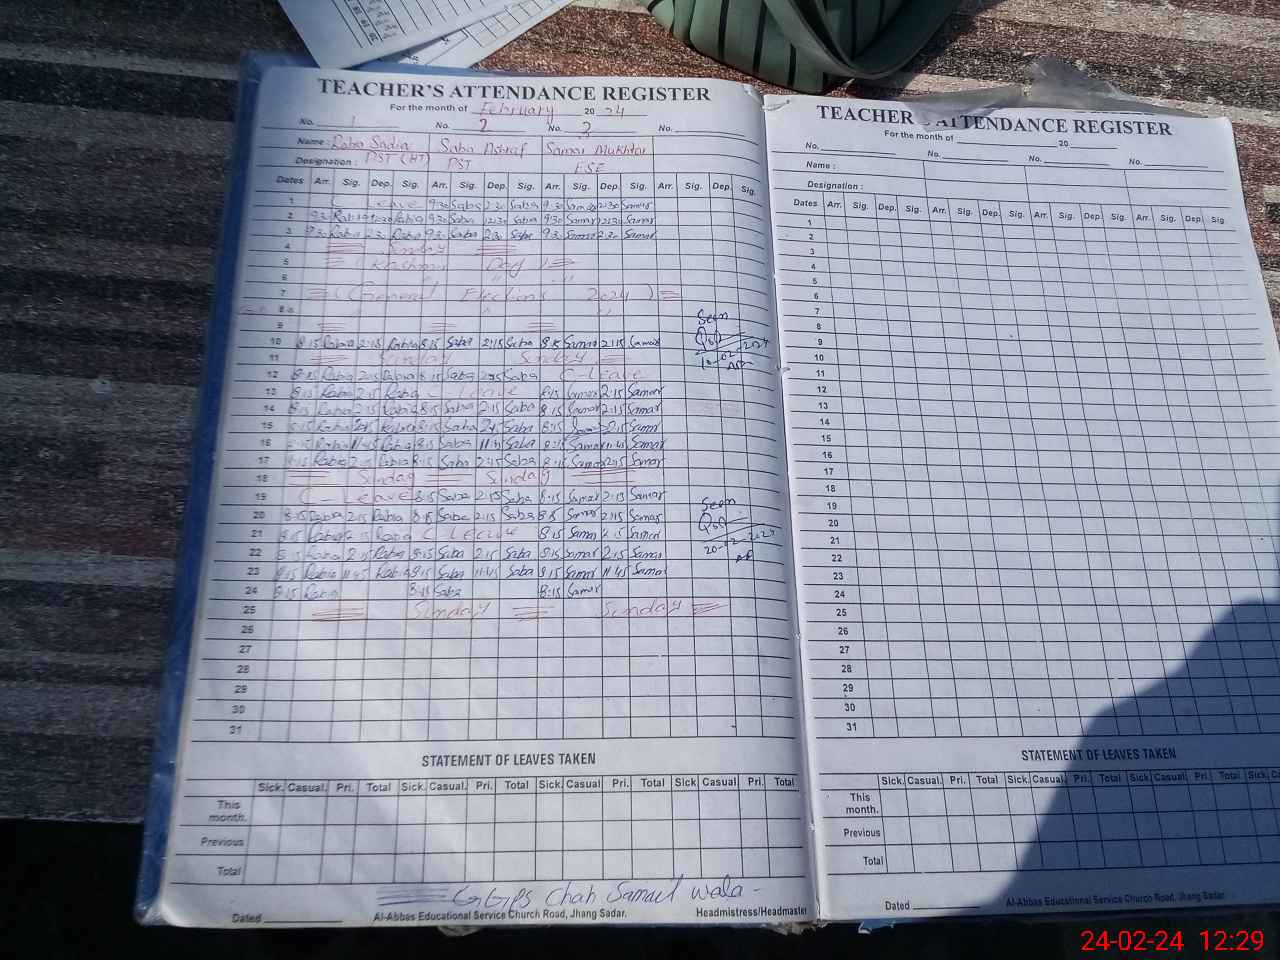 TEACHER'S ATTENDANCE REGISTER
For the month of February 20 24
No. 1 No. 2 No. 3 No.
Name: Rabia Sadia Saba Ashraf Samar Mukhtar
Designation: PST (HT) PST ESE
Dates Arr. Sig. Dep. Sig. Arr. Sig. Dep. Sig. Arr. Sig. Dep. Sig. Arr. Sig. Dep. Sig.
1 C Leave 9:30 Saba 2:30 Saba 9:30 Samar 2:30 Samar
2 9:30 Rabia 12:30 Rabia 9:30 Saba 12:30 Saba 9:30 Samar 12:30 Samar
3 9:30 Rabia 2:30 Rabia 9:30 Saba 2:30 Saba 9:30 Samar 2:30 Samar
4 Sunday
5 (Kashmir Day)
6
7 (General Elections 2024)
8
9
10 8:15 Rabia 2:15 Rabia 8:15 Saba 2:15 Saba 8:15 Samar 2:15 Samar
Seen
10-02-2024
11 Sunday Sunday
12 8:15 Rabia 2:15 Rabia 8:15 Saba 2:15 Saba C-Leave
13 8:15 Rabia 2:15 Rabia C-Leave 8:15 Samar 2:15 Samar
14 8:15 Rabia 2:15 Rabia 8:15 Saba 2:15 Saba 8:15 Samar 2:15 Samar
15 8:15 Rabia 2:15 Rabia 8:15 Saba 2:15 Saba 8:15 Samar 2:15 Samar
16 8:15 Rabia 11:45 Rabia 8:15 Saba 11:45 Saba 8:15 Samar 11:45 Samar
17 8:15 Rabia 2:15 Rabia 8:15 Saba 2:15 Saba 8:15 Samar 2:15 Samar
18 Sunday Sunday
19 C-Leave 8:15 Saba 2:15 Saba 8:15 Samar 2:15 Samar
20 8:15 Rabia 2:15 Rabia 8:15 Saba 2:15 Saba 8:15 Samar 2:15 Samar
Seen
20-02-2024
21 8:15 Rabia 2:15 Rabia C-Leave 8:15 Samar 2:15 Samar
22 8:15 Rabia 2:15 Rabia 8:15 Saba 2:15 Saba 8:15 Samar 2:15 Samar
23 8:15 Rabia 11:45 Rabia 8:15 Saba 11:45 Saba 8:15 Samar 11:45 Samar
24 8:15 Rabia 8:15 Saba 8:15 Samar
25 Sunday Sunday
26
27
28
29
30
31
STATEMENT OF LEAVES TAKEN
Sick. Casual. Pri. Total Sick. Casual. Pri. Total Sick. Casual Pri. Total Sick. Casual. Pri. Total
This month.
Previous
Total
GGPS Chah Samail wala
Dated Al-Abbas Educational Service Church Road, Jhang Sadar. Headmistress/Headmaste
TEACHER'S ATTENDANCE REGISTER
For the month of 20
No. No. No. No.
Name :
Designation :
Dates Arr. Sig. Dep. Sig. Arr. Sig. Dep. Sig. Arr. Sig. Dep. Sig. Arr. Sig. Dep. Sig.
1
2
3
4
5
6
7
8
9
10
11
12
13
14
15
16
17
18
19
20
21
22
23
24
25
26
27
28
29
30
31
STATEMENT OF LEAVES TAKEN
Sick. Casual. Pri. Total Sick. Casual. Pri. Total Sick. Casual. Pri. Total Sick. C
This month.
Previous
Total
Dated Al-Abbas Educational Service Church Road, Jhang Sadar.
24-02-24 12:29